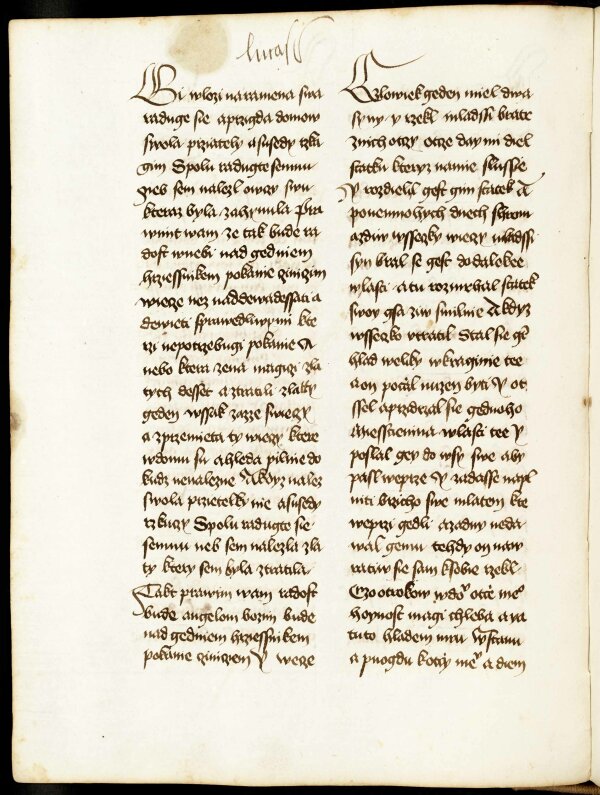 lucass
Gi wlozi na ramena swa
raduge sie a przigda domow
swola prziately a susedy rzka
gim Spolu radugte se mnu
neb sem nalezl owczy swu
kteraz byla zahynula Pra
wimt wam ze tak bude ra
dost w nebi nad gedniem
hrziessnikem pokanie czinizim
wiecze nez nad dewadessati a
dewieti sprawedliwymi kte
rzi nepotrzebugi pokanie A
nebo ktera zena magiczi zla
tych desset a ztratili zlaty
geden wssak zazze swieczy
a zprzemieta ty wieczy ktere
w domu su a hleda pilnie do
kudz nenalezne A kdyz nalez
swola przietelky nie a susedy
rzkuczy Spolu radugte sie
se mnu neb sem nalezla zla
ty ktery sem byla ztratila
Takt prawim wam radost
bude angelom bozim bude
nad gedniem hrziessnikem
pokanie czinizien Y wecze
Czlowiek geden miel dwa
syny y rzekl mladssi bratr
z nich otczy otcze day mi diel
statku kteryz na mie slusse
Y rozdielil gest gim statek A
po nemnohych dnech shrom
azdiw wssecky wieczy mladssi
syn bral se gest do daleke
wlasti a tu rozmrhal statek
swoy gsa ziw smilnie A kdyz
wssecko vtratil Stal sie ge
hlad weliky w kraginie tee
a on poczal nuzen byti Y ot
ssel a przidrzal sie gednoho
miesstienina wlasti tee Y
poslal gey do wsy swe aby
pasl weprze Y zadasse napl
niti brzicho swe mlatem kte
weprzi gedli a zadny neda
wal gemu tehdy on naw
ratiw sie sam k sobie rzekl
Czo otrokow w do᷑ otcze me᷑
hoynost magi chleba a ia
tuto hladem mru Wstanu
a puogdu k otczy me᷑ a diem